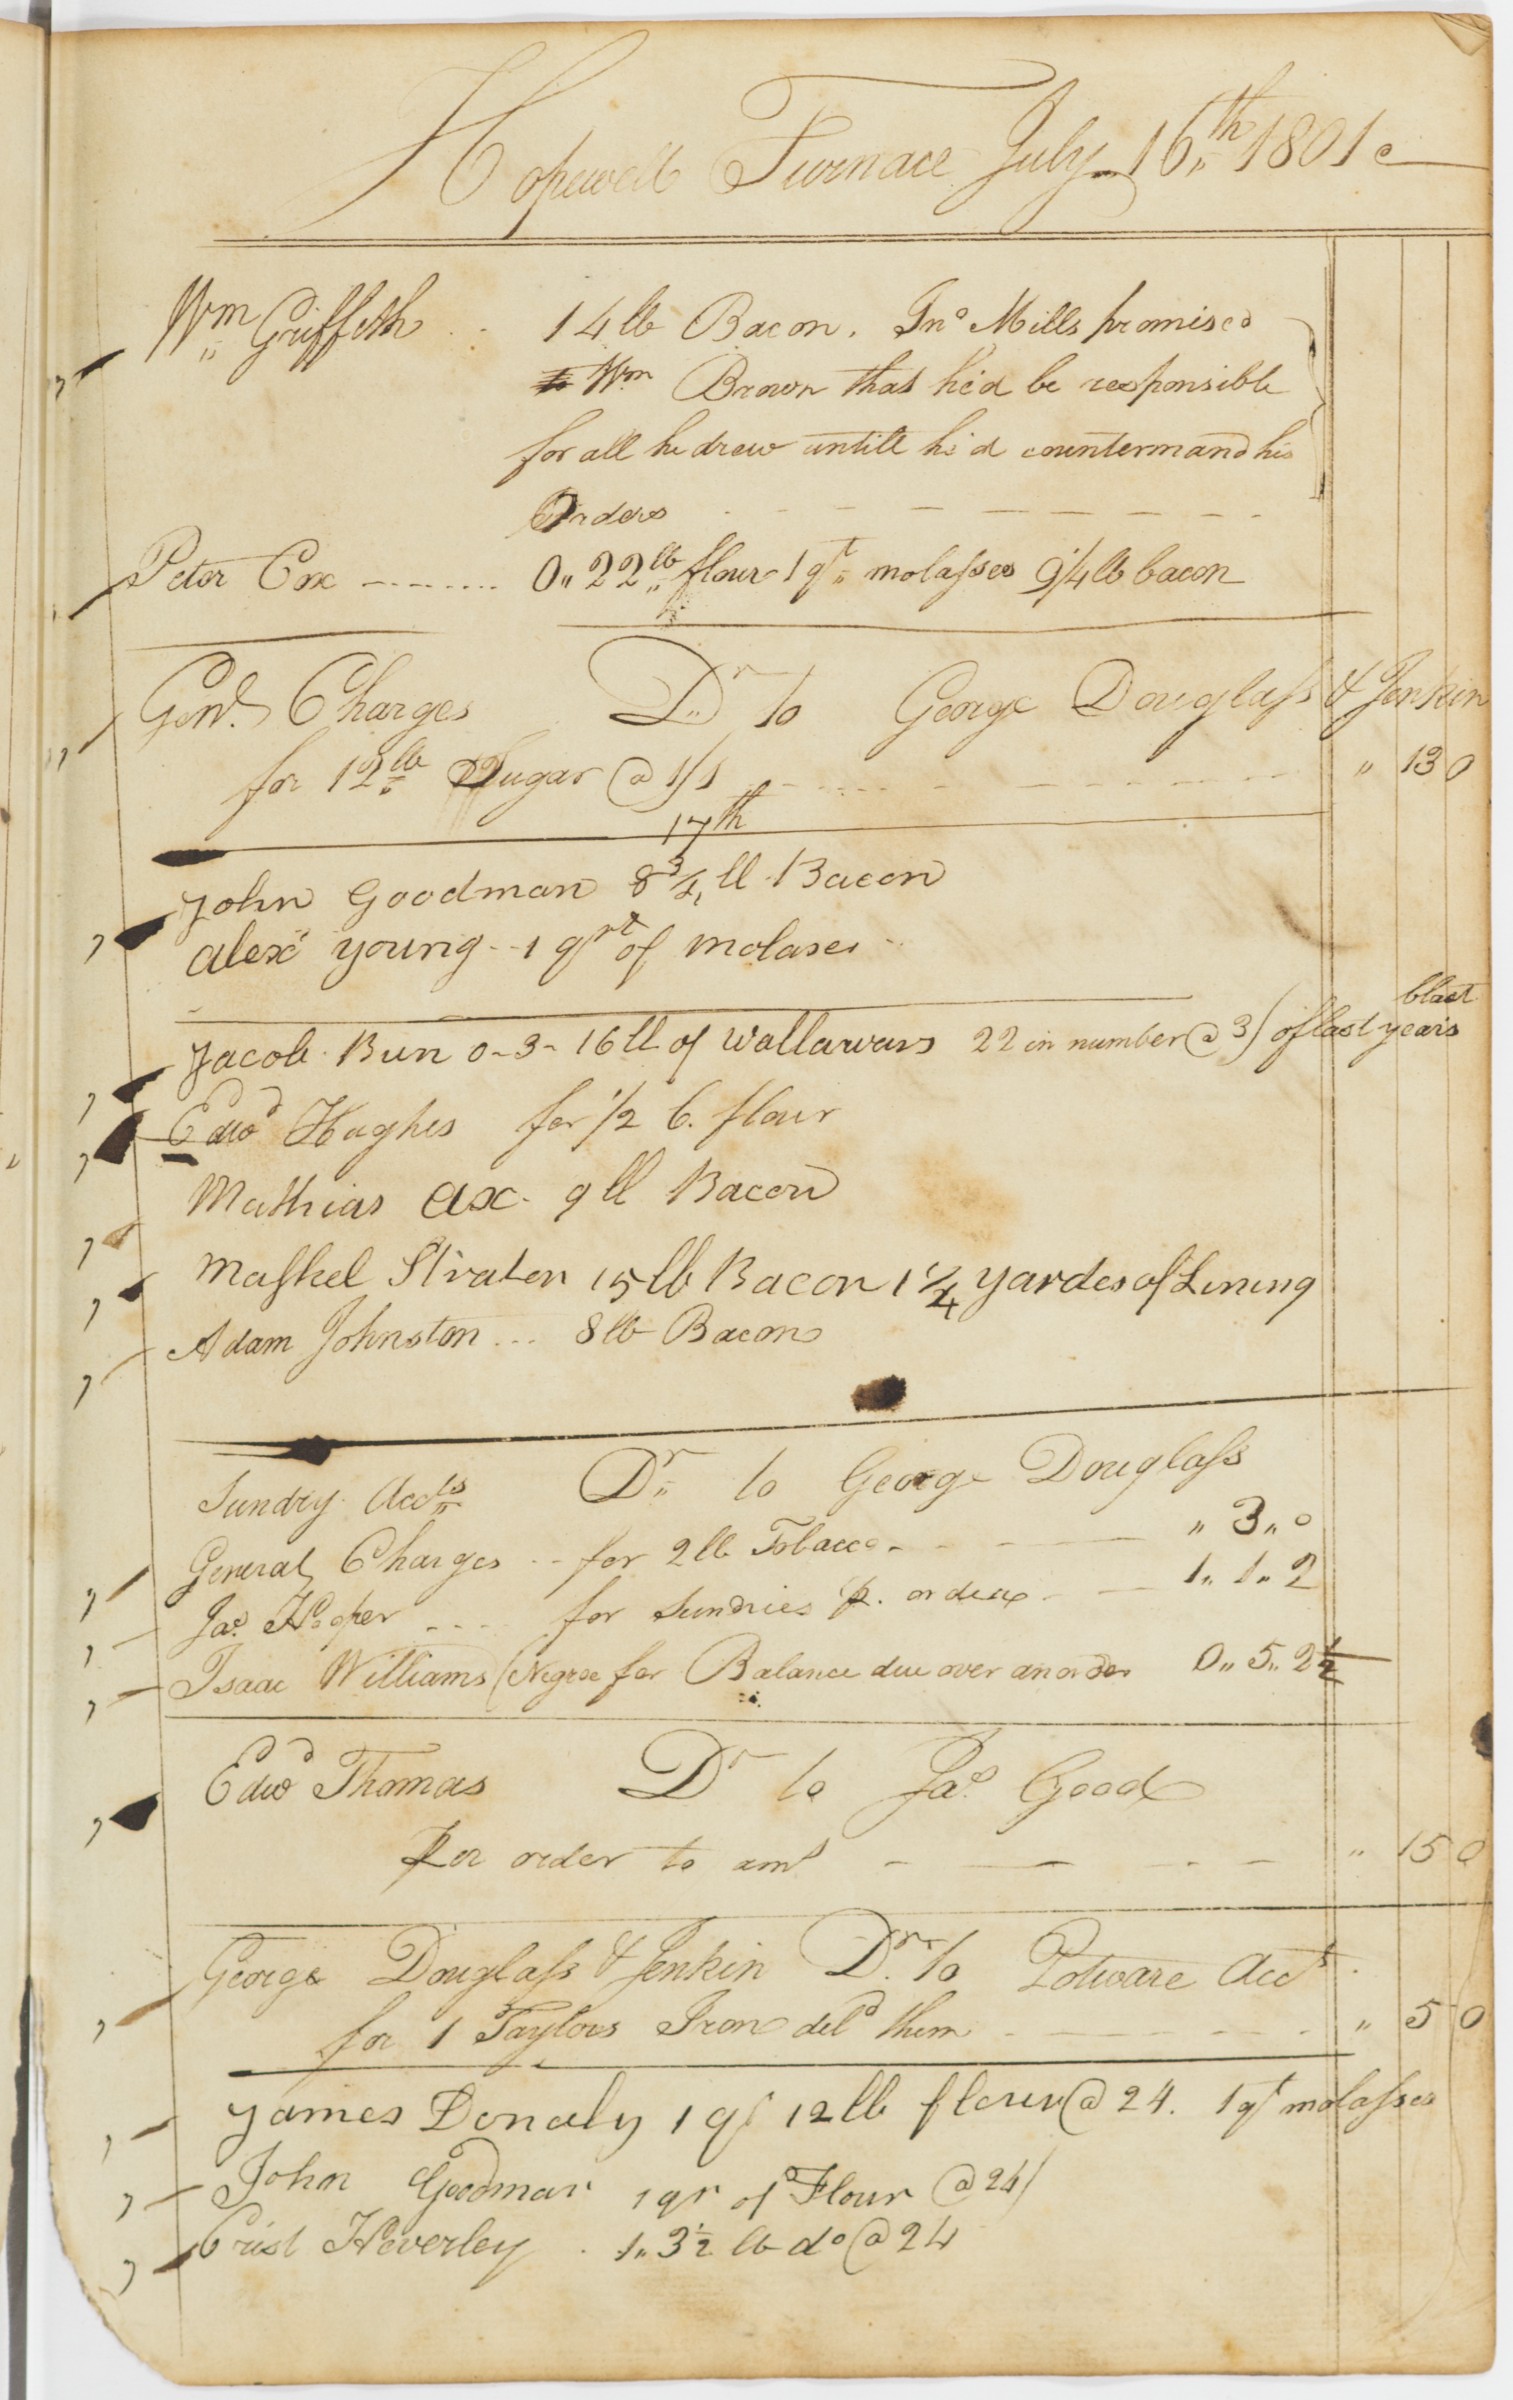 Hopewell Furnace July 16th 1801
Wm Griffeth .. 14 lb Bacon. Jno Mills promised
to Wm Brown that he'd be responsible
for all he drew untill he'd countermand his
Orders
Peter Cox -------- 0,, 22 lb flour 1 qt molasses 9 1/4 lb bacon
Genl Charges Dr to George Douglass & Jenkin
for 12 lb Sugar @ 1/1 ,, 13 0
17th
John Goodman 8 3/4 ll Bacon
alexr young -- 1 qrt of molases
blast
Jacob Bun 0-3-16 ll of Wallawars 22 in number @ 3/ of last years
Edwd Hughes for 1/2 C. flour
Mathias ax - 9 ll Bacon
Maskel Straten 15 lb Bacon 1 1/4 yardes of Lining
Adam Johnston ... 8 lb Bacon
Sundry Accts Dr to George Douglass
General Charges -- for 2 lb Tobacco ,, 3,, 0
Jas Hooper .... for Sundries p. order 1,, 1,, 2
Isaac Williams (Negroe for Balance due over an order 0,, 5,, 2 1/2
Edwd Thomas Dr to Jas Good
Per order to amt ,, 15 0
George Douglass & Jenkin Dr to Potware Acct.
for 1 Taylors Iron deld them ,, 5 0
James Donaly 1 qr 12 lb flour @ 24. 1 qt molasses
John Goodman 1 qr of Flour @ 24/
Crist Heverley . 1,, 3 1/2 lb do @ 24